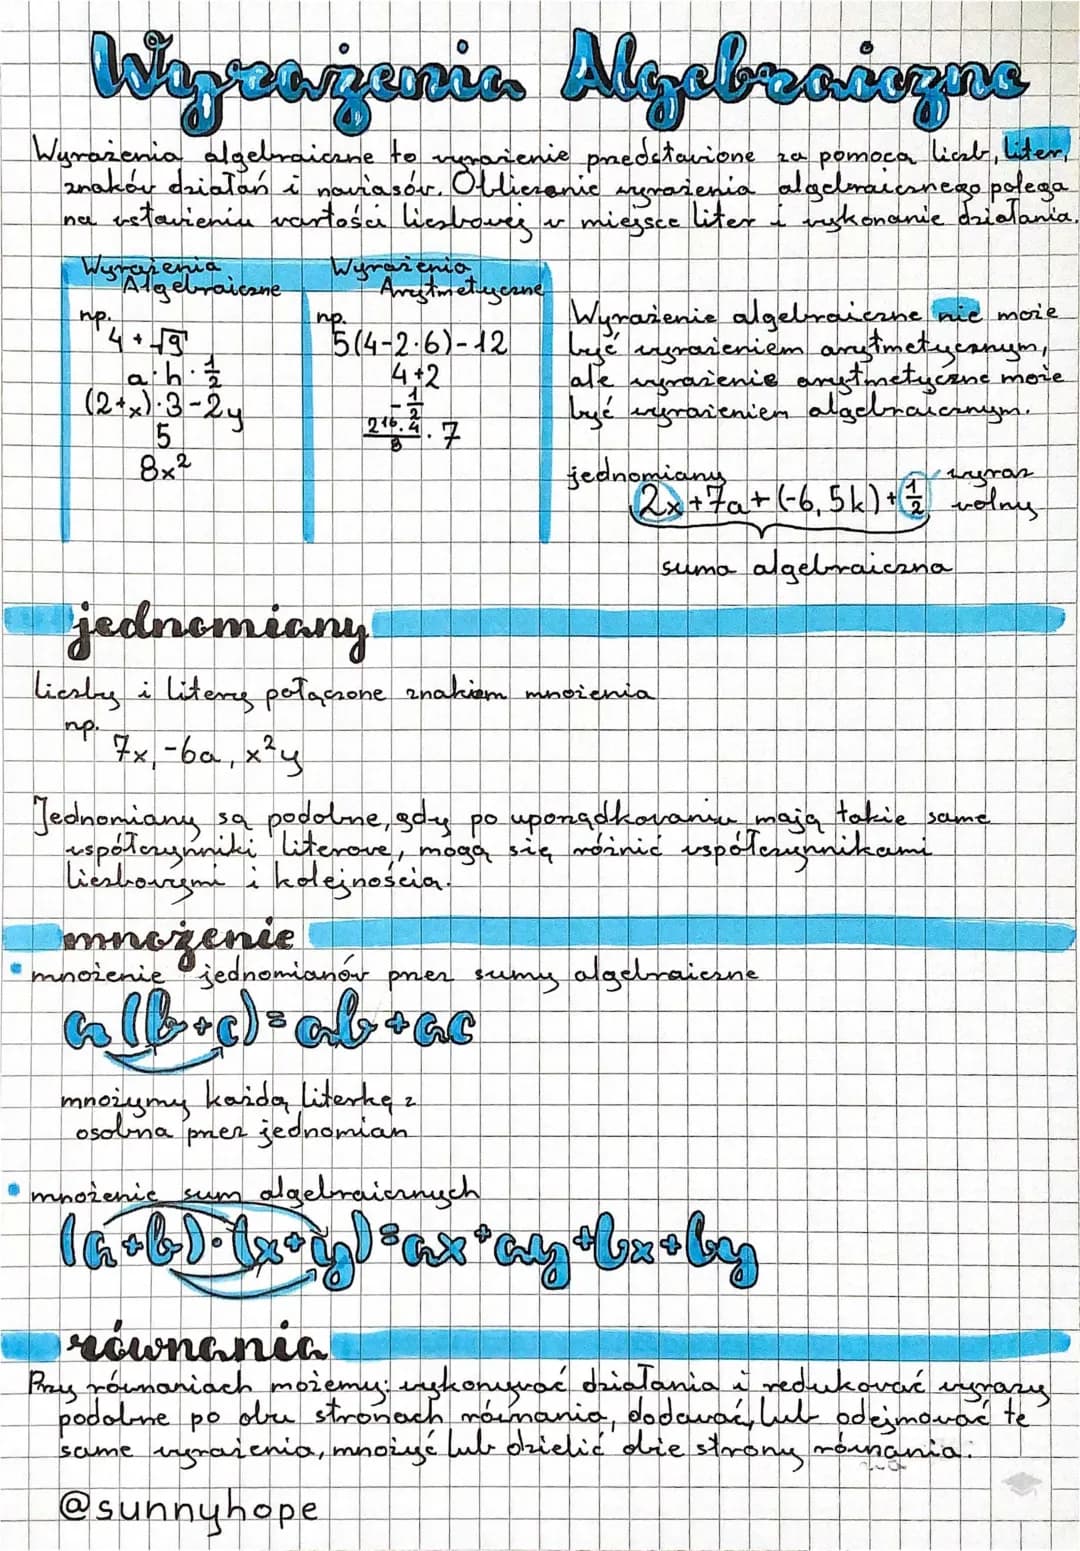 Wyrażenia Algebraiczne
Wyrażenia algebraiczne to wyrażenie przedstawione za pomocą liczb, liter,
znaków działań i nawiasów. Obliczanie wyrażenia algebraicznego polega
na wstawieniu wartości liczbowej w miejsce liter i wykonanie działania.
Wyrażenia
Algebraiczne
np.
4 + √9
a·h·½
(2+x)·3-2y
5
8x²
Wyrażenia
Arytmetyczne
np.
5(4-2·6)-12
4+2
-½
216·4/8 · 7
Wyrażenie algebraiczne nie może
być wyrażeniem arytmetycznym,
ale wyrażenie arytmetyczne może
być wyrażeniem algebraicznym.
jednomiany
2x+7a+(-6,5k)+½
wyraz
wolny
suma algebraiczna
jednomiany
liczby i litery połączone znakiem mnożenia
np.
7x, -6a, x²y
Jednomiany są podobne, gdy po uporządkowaniu mają takie same
współczynniki literowe, mogą się różnić współczynnikami
liczbowymi i kolejnością.
mnożenie
• mnożenie jednomianów przez sumy algebraiczne
a(b+c)=ab+ac
mnożymy każdą literkę z
osobna przez jednomian
• mnożenie sum algebraicznych
(a+b)·(x+y)=ax+ay+bx+by
równania
Przy równaniach możemy: wykonywać działania i redukować wyrazy
podobne po obu stronach równania, dodawać, lub odejmować te
same wyrażenia, mnożyć lub dzielić obie strony równania.
@sunnyhope